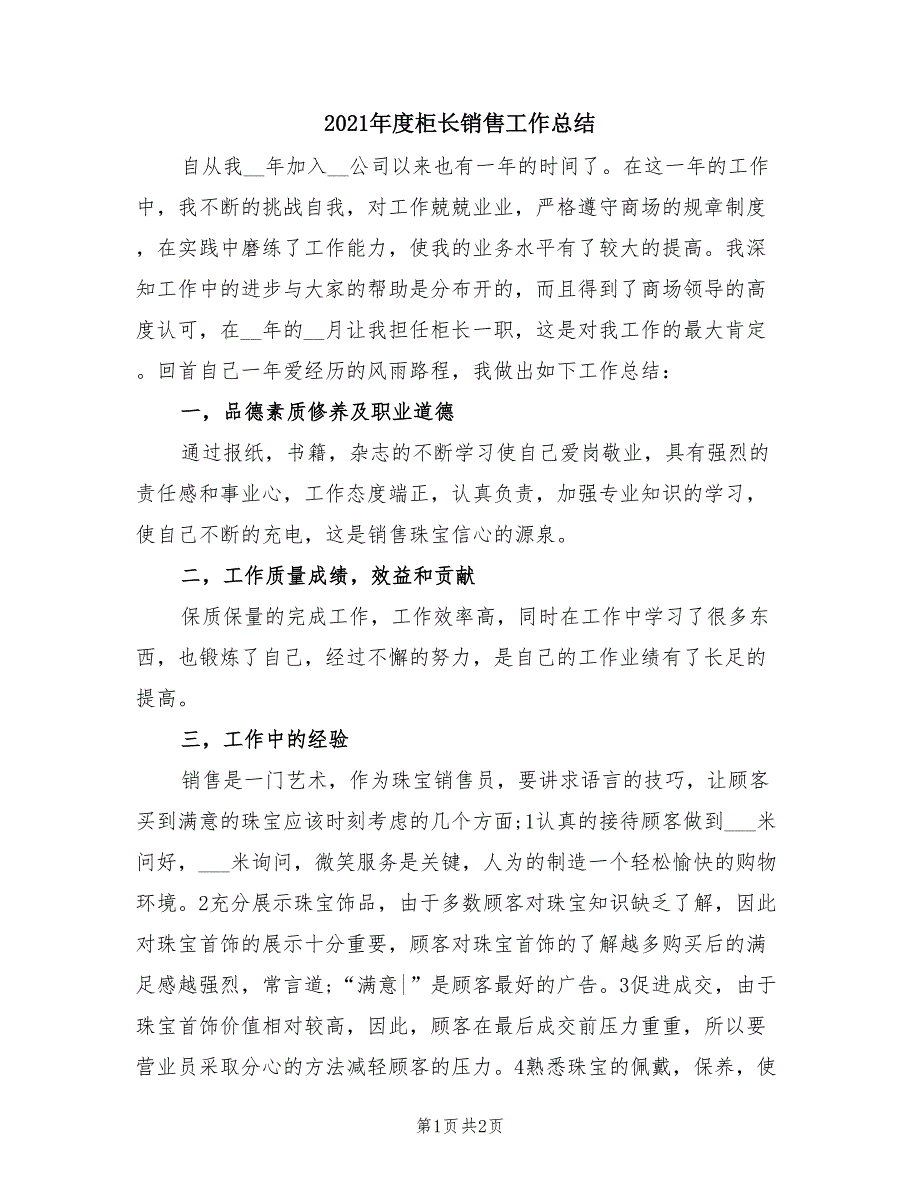 2021年度柜长销售工作总结
自从我__年加入__公司以来也有一年的时间了。在这一年的工作
中，我不断的挑战自我，对工作兢兢业业，严格遵守商场的规章制度
，在实践中磨练了工作能力，使我的业务水平有了较大的提高。我深
知工作中的进步与大家的帮助是分布开的，而且得到了商场领导的高
度认可，在__年的__月让我担任柜长一职，这是对我工作的最大肯定
。回首自己一年爱经历的风雨路程，我做出如下工作总结：
一，品德素质修养及职业道德
通过报纸，书籍，杂志的不断学习使自己爱岗敬业，具有强烈的
责任感和事业心，工作态度端正，认真负责，加强专业知识的学习，
使自己不断的充电，这是销售珠宝信心的源泉。
二，工作质量成绩，效益和贡献
保质保量的完成工作，工作效率高，同时在工作中学习了很多东
西，也锻炼了自己，经过不懈的努力，是自己的工作业绩有了长足的
提高。
三，工作中的经验
销售是一门艺术，作为珠宝销售员，要讲求语言的技巧，让顾客
买到满意的珠宝应该时刻考虑的几个方面;1认真的接待顾客做到___米
问好，___米询问，微笑服务是关键，人为的制造一个轻松愉快的购物
环境。2充分展示珠宝饰品，由于多数顾客对珠宝知识缺乏了解，因此
对珠宝首饰的展示十分重要，顾客对珠宝首饰的了解越多购买后的满
足感越强烈，常言道;“满意|”是顾客最好的广告。3促进成交，由于
珠宝首饰价值相对较高，因此，顾客在最后成交前压力重重，所以要
营业员采取分心的方法减轻顾客的压力。4熟悉珠宝的佩戴，保养，使
第1页 共2页